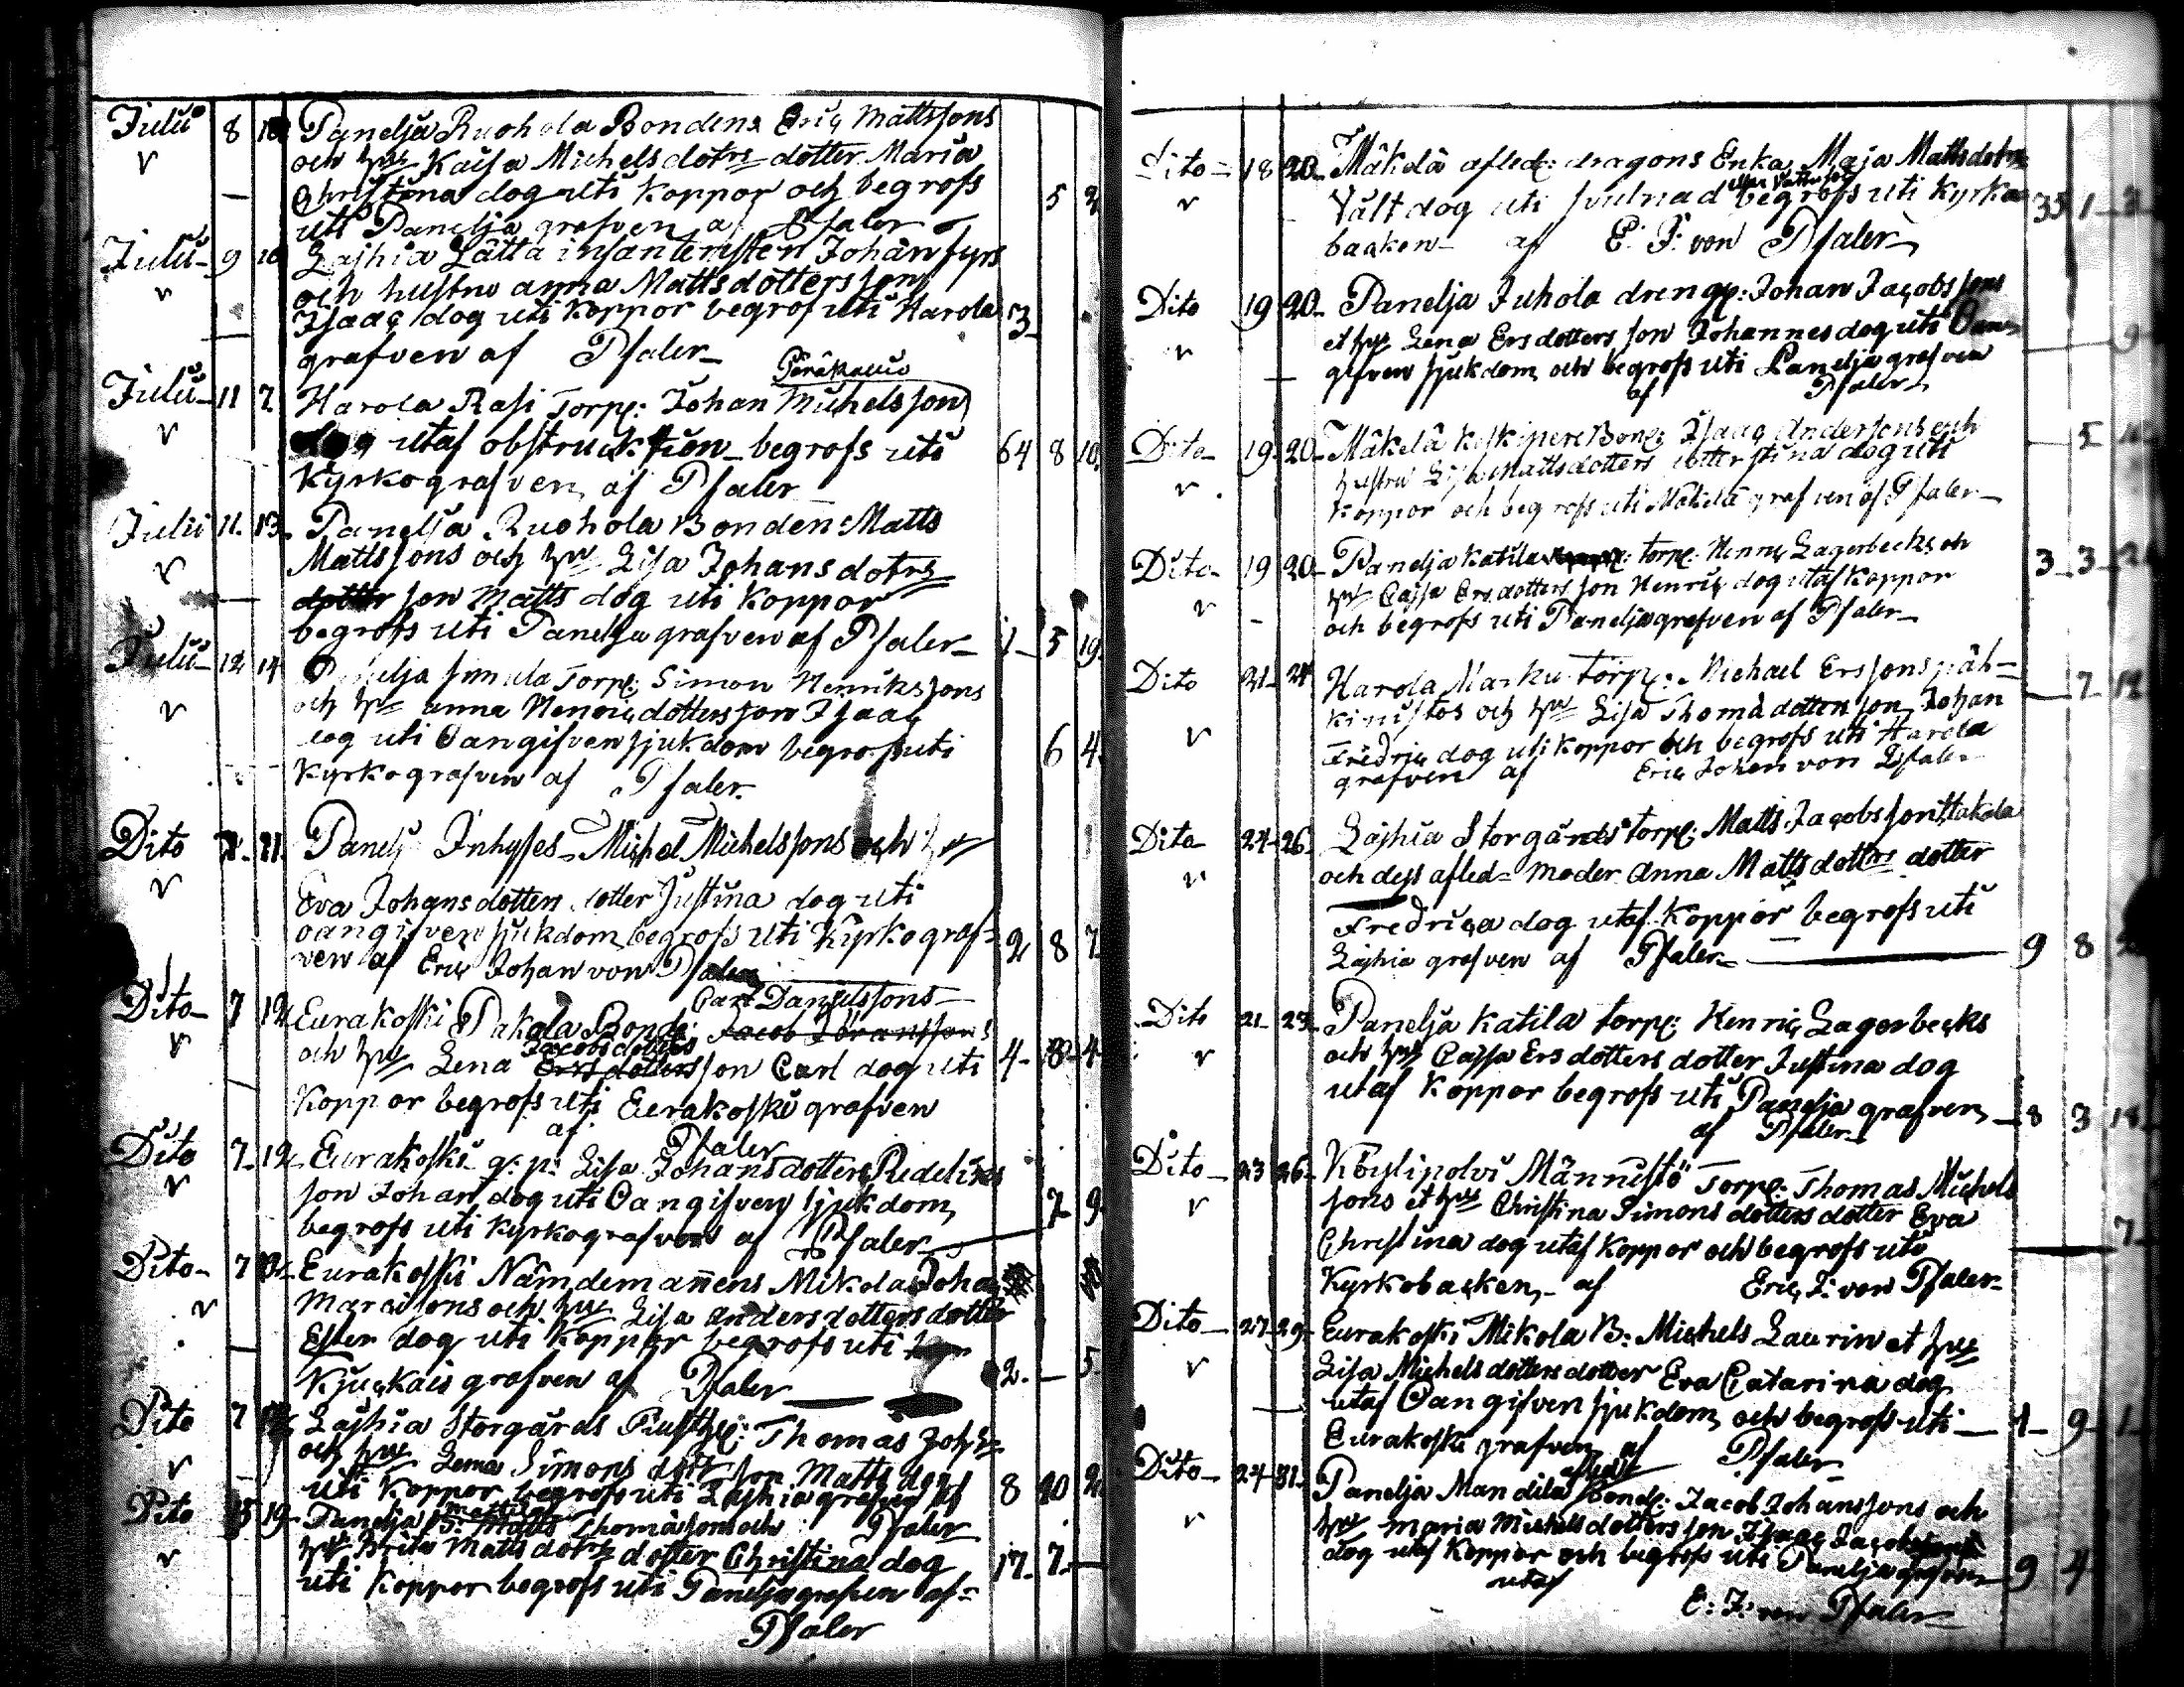 Julii 8 Panelja Ruohola Bondens Eriç Mattssons
och hu Kaisa Michelsdotrs dotter Maria
Christina dog uti Koppor och begrofs 5 2
uti Panelja grafven af Pfaler
Julii 9 10 Lajhia Lätta infanteristen Johan fyrs
och hustru anna Mattsdotters son
Isaaç dog uti Koppor begrof uti Harola 3
grafven af Pfaler
Julii 11 7 Harola Rasi Torp: Johan Michelsson
utaf obstrucktion begrofs uti 64 8 10
Kyrkografven af Pfaler
Julii 11 13 Panelja Ruohola Bonden Matts
Mattssons och hu Lisa Johansdotrs
son Matts dog uti Koppor
begrofs uti Panelja grafven af Pfaler 1 5 19
Julii 12 14 Panelja Simula Torp: Simon Henrikssons
och hu anna Henriçdotters son Isaaç
dog uti Oangifven sjukdom begrofs uti 6 4
Kyrkografven af Pfaler
Dito 21 Panelj Inhyses Michel Michelssons och hu
Eva Johansdotters dotter Justina dog uti
oangifven sjukdom begrofs uti Kyrkograf-
ven af Eriç Johan von Pfaler 2 8 7
Carl Danielssons
Dito 7 12 Eurakoski Pakola Bond:
Jacobsdotters
och hu Lena son Carl dog uti 4 8 4
Koppor begrofs uti Eurakoski grafven
af Pfaler
Dito 7 12 Eurakoski q: p: Lisa Johansdotters Ridelises
son Johan dog uti Oangifven sjukdom 7 9
begrofs uti Kyrkografven af Pfaler
Dito 7 12 Eurakoski Nämdemañens Mikola Joha
och hu Lisa andersdotters dotter
Ester dog uti Koppor begrofs uti
Kjuçkais grafven af Pfaler 2 5
Dito 7 Lajhia Storgårds Thomas Joh
och hu Lena Simons dotr son Matts dog
uti Koppor begrofs uti Lajhia grafven af 8 10 2
Dito 15 19 Panelja Thomässons och Pfaler
hu Brita Mattsdotrs dotter Christina dog 17 7
uti Koppor begrofs uti Panelja grafven af
Pfaler
Dito 18 20 Mäkelä afled: dragons Enka Maja Mattsdotr
Vält dog uti begrofs uti Kyrko 35 1
backen af E: J: von Pfaler
Dito 19 20 Panelja Juhola dreng: Johan Jaçobssons
et hu Lena Ersdotters son Johannes dog uti Oan-
gifven sjukdom och begrofs uti Panelja grafven 9
af Pfaler
Dito 19 20 Mäkelä Bond: Isaaç Anderssons och 5
hustru Lisa Mattsdotters dotter Stina dog uti
Koppor och begrofs uti Mäkelä grafven af Pfaler
Dito 19 20 Panelja Katila torp: Henriç Lagerbecks och 3 3
hu Cajsa Ersdotters son Henriç dog utaf Koppor
och begrofs uti Panelja grafven af Pfaler
Dito 21 24 Harola Marku Torp: Michael Erssons päh-
kinistos och hu Lisa Thomädotters son Johan 7 12
Fredriç dog uti Koppor och begrofs uti Harola
grafven af Eriç Johan von Pfaler
Dito 24 26 Lajhia Storgårds torp: Matts Jaçobsson Hakola
och dess afled= moder Anna Mattsdottrs dotter
Fredriça dog utaf Koppor begrofs uti
Lajhia grafven af Pfaler 9 8
Dito 21 23 Panelja Katila torp: Henriç Lagerbeçks
och hu Cajsa Ersdotters dotter Justina dog
utaf Koppor begrofs uti Panelja grafven 8 3 18
af Pfaler
Dito 23 26 Köylipolvi Männistö Torp: Thomas Michels
sons et hu Christina Simonsdotters dotter Eva
Christina dog utaf Koppor och begrofs uti 7
Kyrkobacken af Eriç J: von Pfaler
Dito 27 29 Eurakoski Mikola B: Michels Laurin et hu
Lisa Michelsdotters dotter Eva Catarina dog
utaf Oangifven sjukdom och begrofs uti 1 9 1
Eurakoski grafven af Pfaler
Dito 24 31 Panelja Mandila Bond: Jacob Johanssons och
hu Maria Michelsdotters son Isaaç
dog utaf Koppor och begrofs uti Panelja grafven 9 4
utaf
E: J: von Pfaler